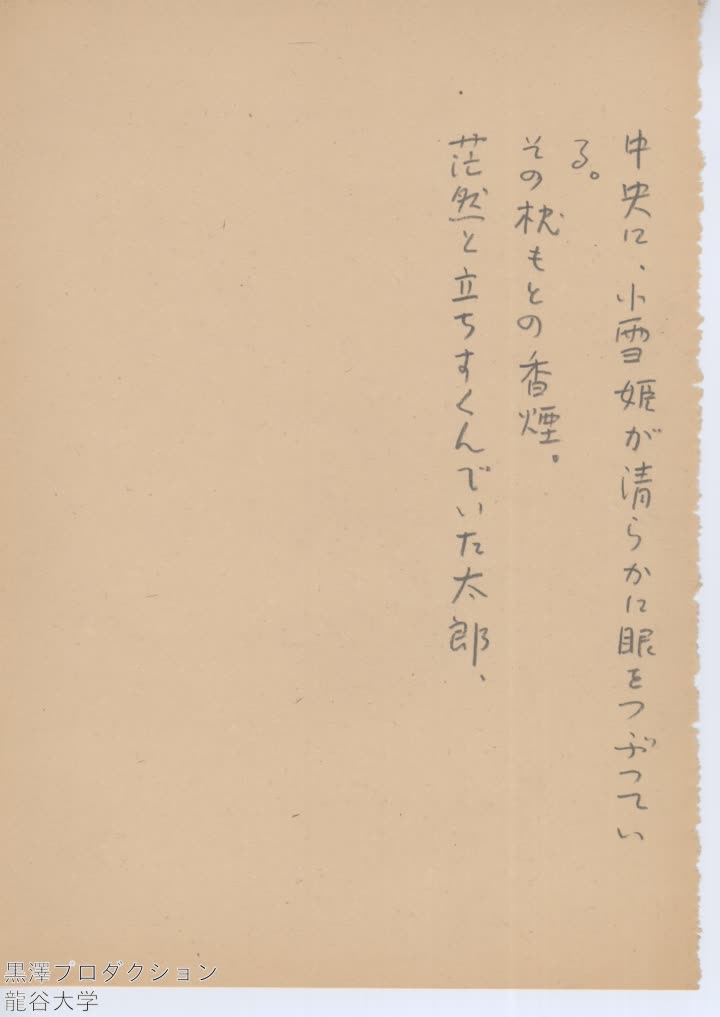 中央に、小雪姫が清らかに眼をつぶってい
る。
その枕もとの香煙。
茫然と立ちすくんでいた太郎、
黒澤プロダクション
龍谷大学